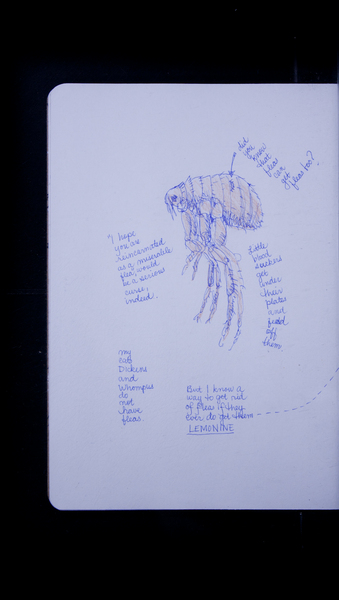 did
you
know
that
fleas
can
get
fleas too?
I hope
you are
reincarnated
as a miserable
flea, would
be a serious
curse,
indeed.
little
blood
suckers
get
under
their
plates
and
feed
off
them.
my
cats
Dickens
and
Whompus
do
not
have
fleas.
But I know a
way to get rid
of fleas if they
ever do get them
LEMONINE